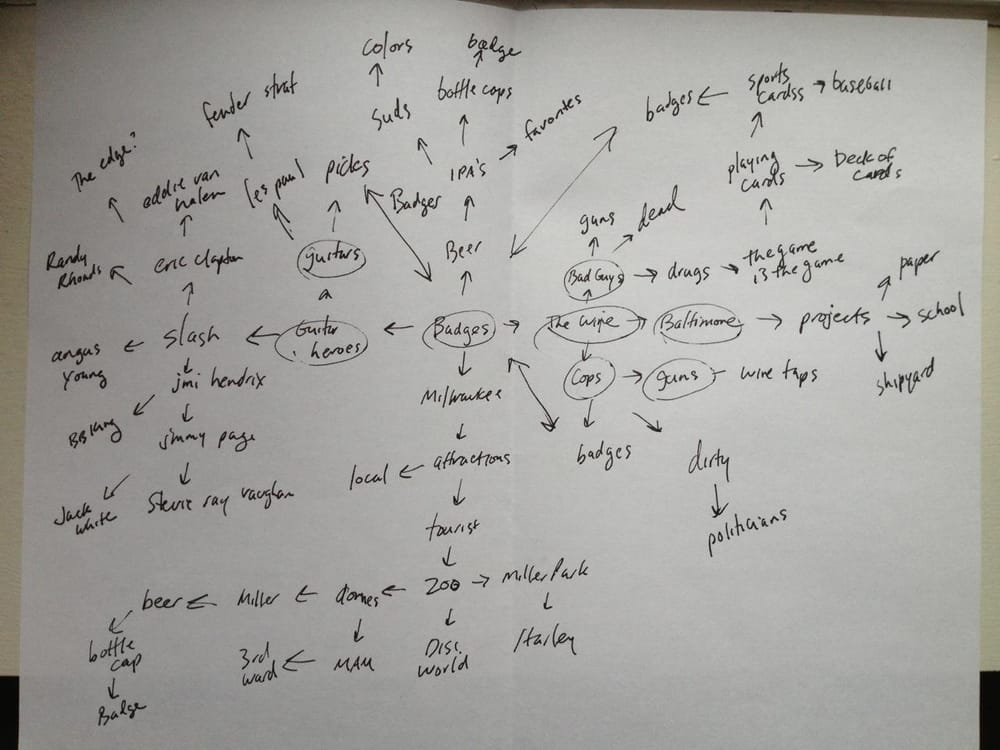 colors
badge
fender strat
suds
bottle caps
favorites
badges
sports
cardss
baseball
The edge?
eddie van
halen
les paul
picks
Badger
IPA's
playing
cards
Deck of
cards
guns
dead
Randy
Rhoads
eric clapton
guitars
Beer
Bad Guys
drugs
the game
is the game
paper
angus
young
slash
Guitar
heroes
Badges
The wire
Baltimore
projects
school
jmi hendrix
Milwaukee
Cops
guns
wire taps
shipyard
BB King
jimmy page
local
attractions
badges
dirty
Jack
white
Stevie ray vaughan
tourist
politicians
beer
Miller
domes
zoo
Miller Park
bottle
cap
3rd
ward
MAM
Disc.
world
Harley
Badge